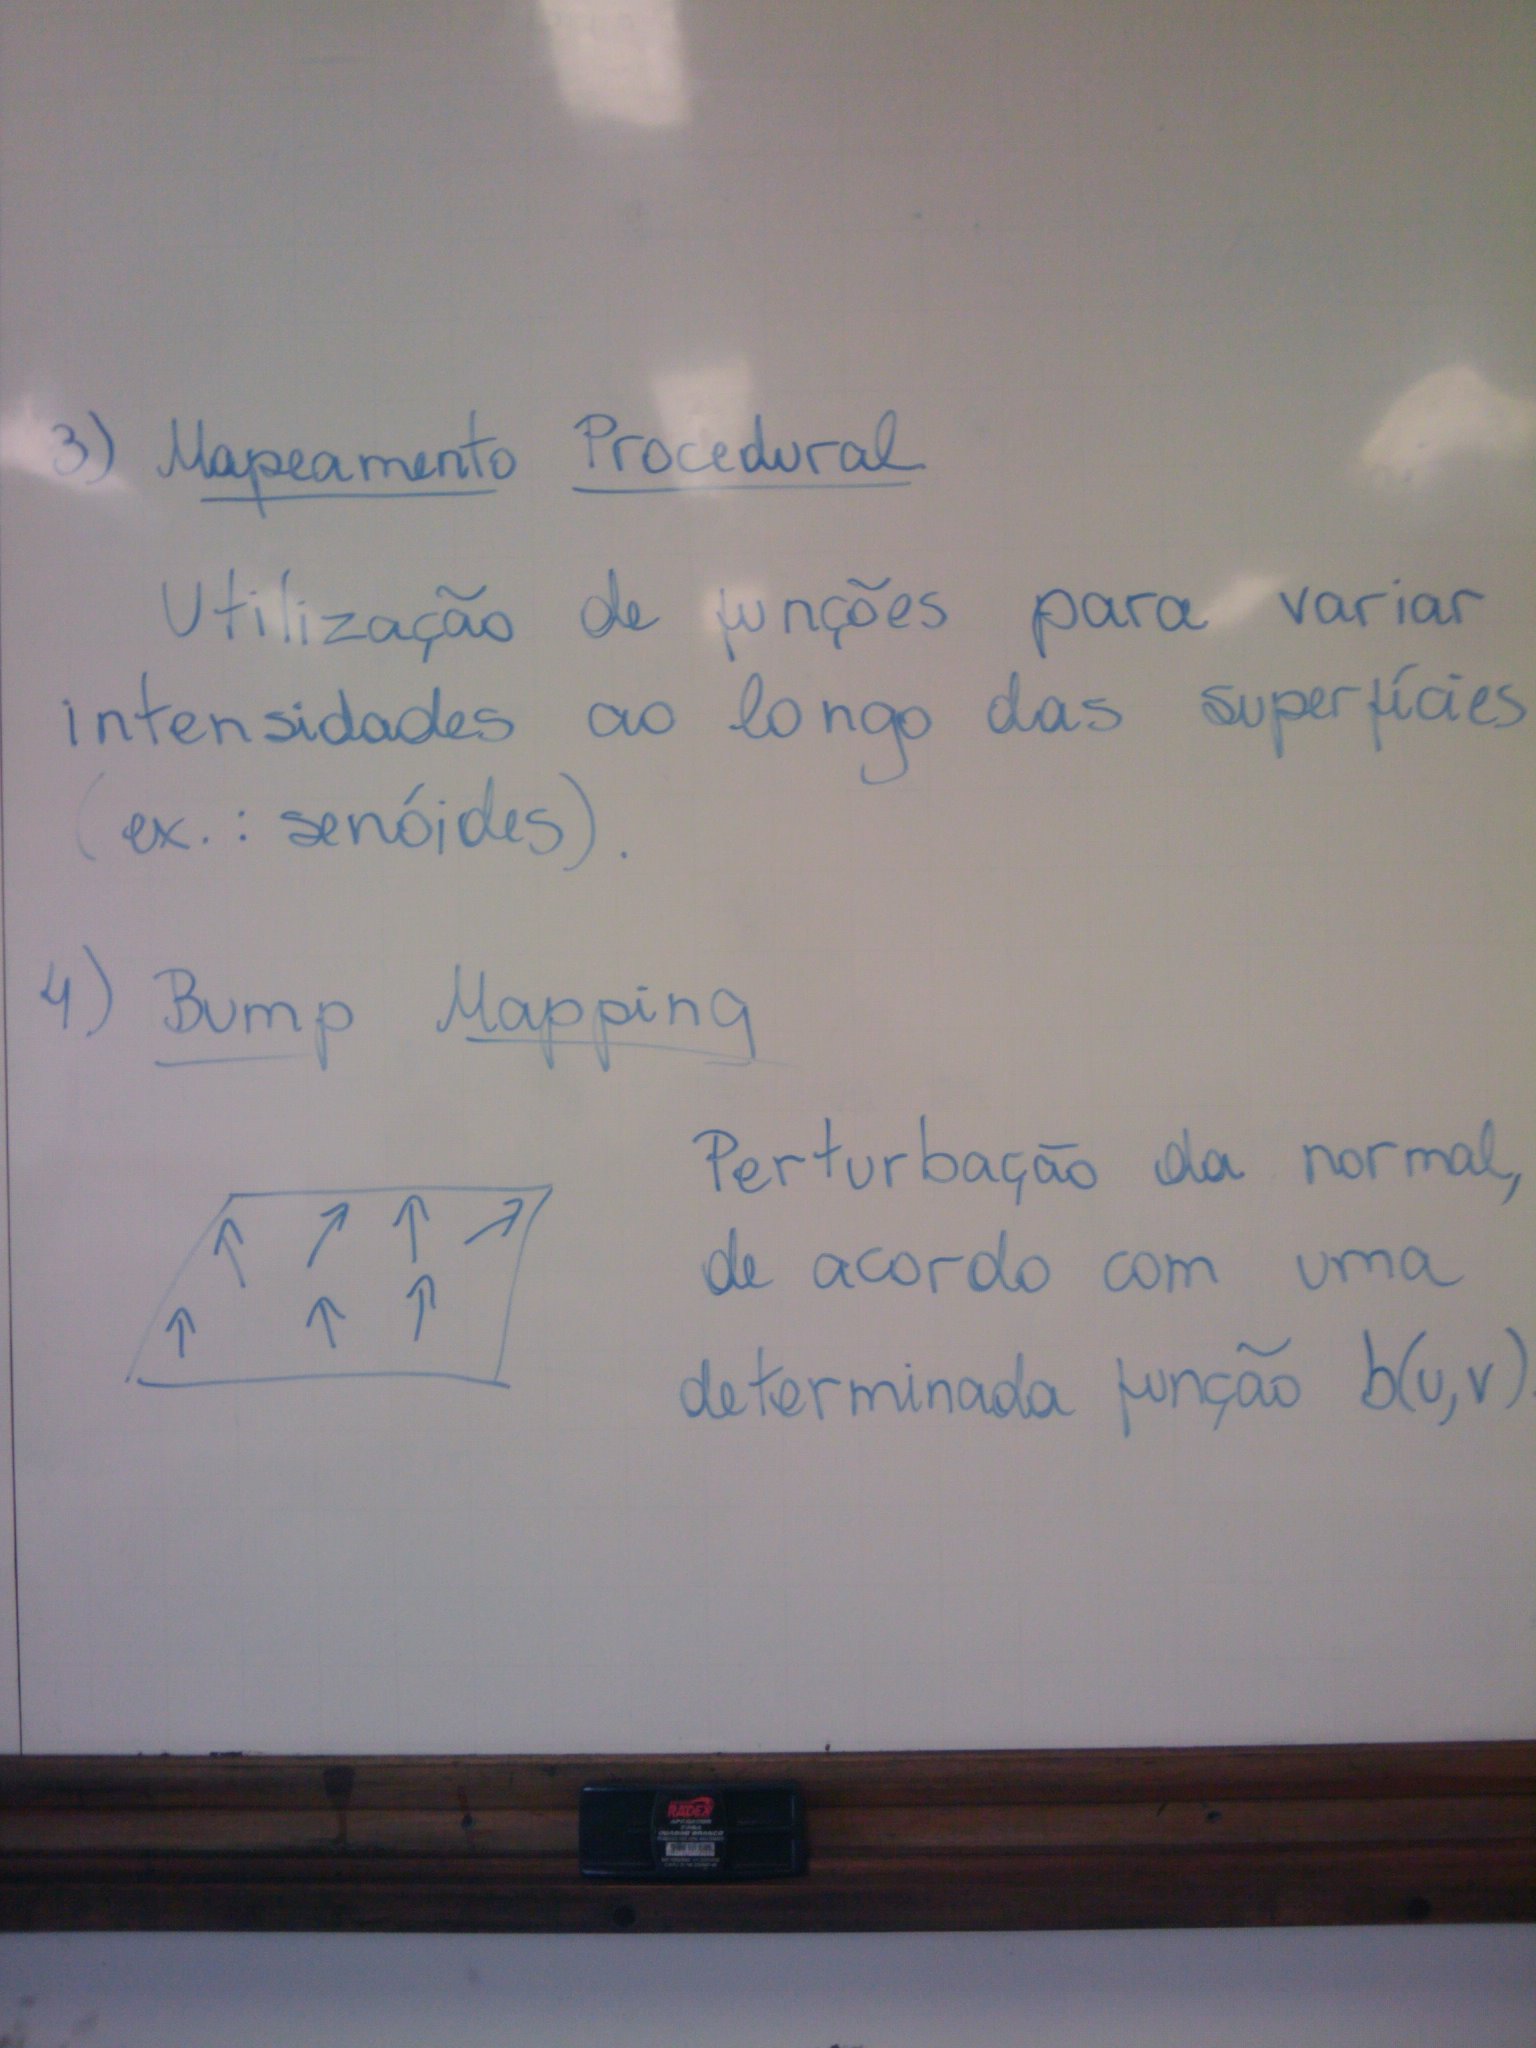 3) Mapeamento Procedural
Utilização de funções para variar
intensidades ao longo das superfícies
(ex.: senóides).
4) Bump Mapping
Perturbação da normal,
de acordo com uma
determinada função b(u,v)
RADEX
APAGADOR
PARA
QUADRO BRANCO